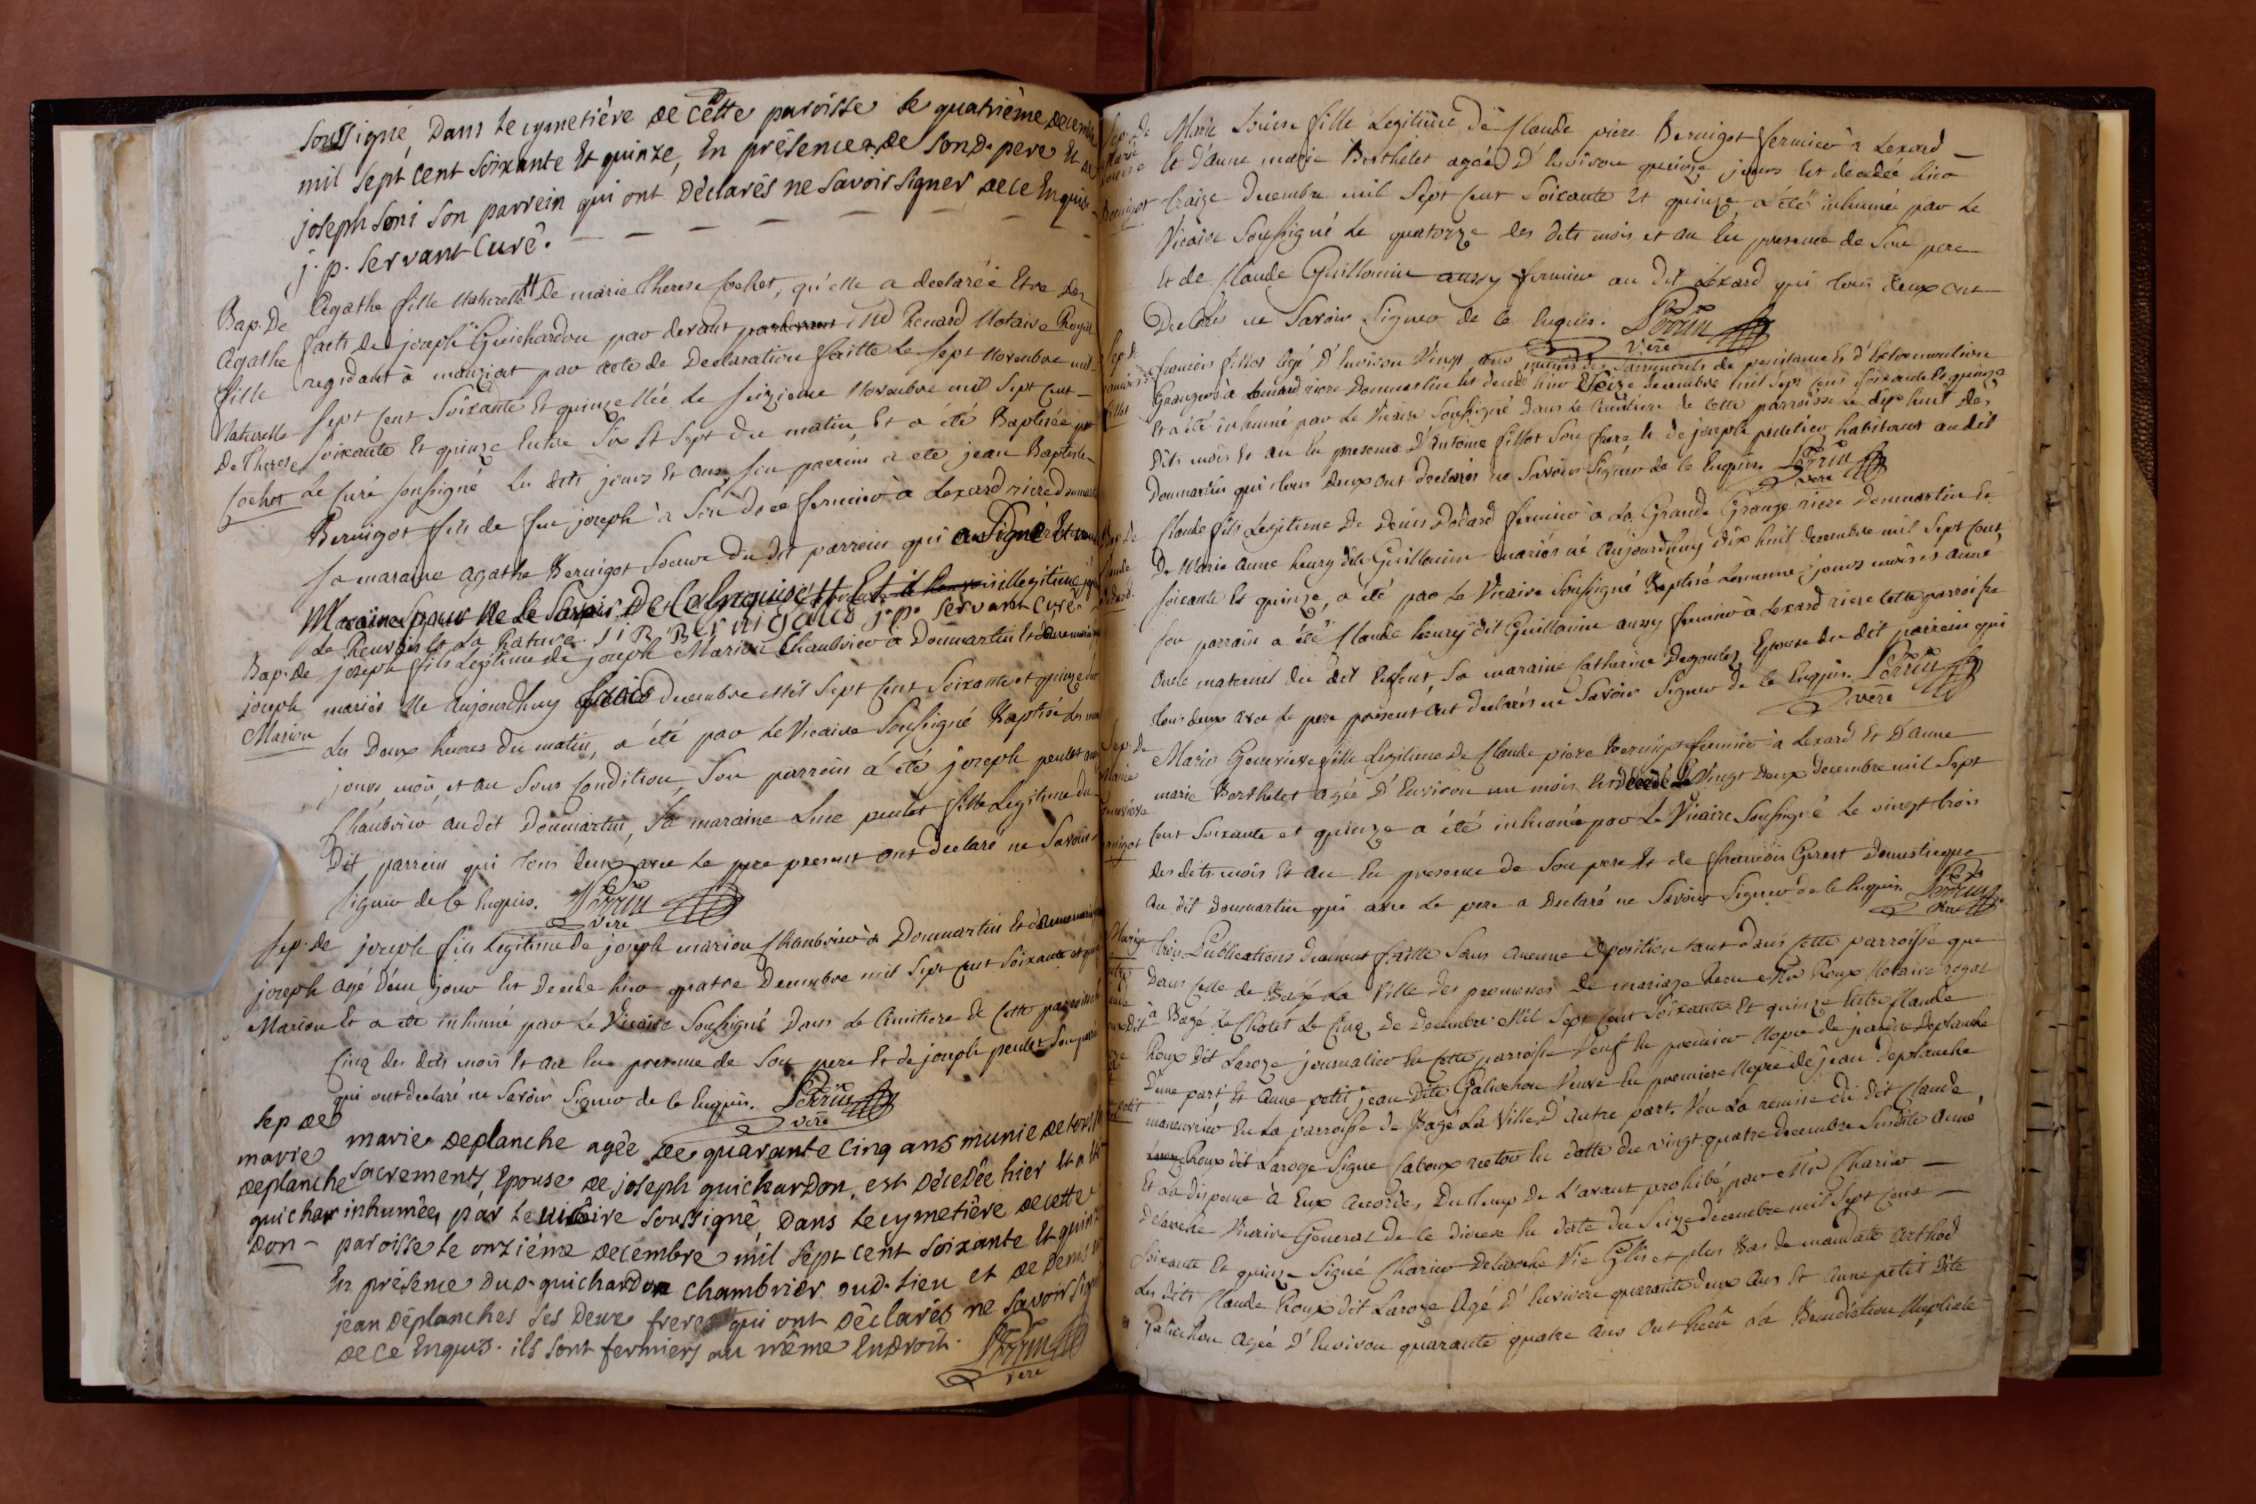 soussigné, Dans le cymetiére de cétte paroisse le quatrième decembre
mil sept cent soixante Et quinze, En présence de son d. pere Et de
joseph soni son parrein qui ont Déclarés ne savoir signer de ce Enquis
j. p. servant Curé.
Bap. De
Agathe
fille
Naturelle
De Therese
Cochet
Agathe fille Naturelle De marie Therese Cochet, qu'elle a declarée Etre des
faits de joseph Guichardon par devant Me Renard Notaire Royal
residant à manziat par acte de Declaration faitte le sept Novembre mil
sept cent soixante Et quinze Née le seizieme Novembre mil sept cent
soixante Et quinze Entre six Et sept du matin, Et a été Baptisée par
le Curé soussigné les dits jours Et ans, son parrein a été jean Baptiste
Bernigot fils de feu joseph à fermier à Lexard riere Dommartin
sa maraine agathe Bernigot soeur Du dit parrein qui a signé Et non
la Maraine pour ne le savoir De ce Enquise
j. B. Bernigaud j. p. servant Curé
Bap. de
joseph
Marion
joseph fils Legitime de joseph Marion Chambrier à Dommartin Et
mariés Né aujourdhuy trois decembre mil sept cent soixante et quinze
les Deux heures du matin, a été par le Vicaire soussigné Baptisé les
jours, mois, et an sous Condition, son parrein a été joseph peulet
Chambrier au dit Dommartin, sa maraine peulet fille Legitime du
Dit parrein qui tous deux avec le pere present ont declaré ne savoir
signer de ce Enquis. Perrin
vire
Sep. de
joseph
Marion
joseph fils Legitime de joseph marion Chambrier à Dommartin Et
agé d'un jour Est Decedé hier quatre Decembre mil sept cent soixante et
Et a été inhumé par le Vicaire soussigné Dans le Cimitiere de cette parroisse
Cinq des dits mois Et an En presence de son pere Et de joseph peulet son
qui ont declaré ne savoir signer de ce Enquis. Perrin
vire
sep de
marie
deplanche
guichar
don
marie deplanche agée de quarante cinq ans munie de tous
sacrements, Epouse de joseph guichardon, est Décedée hier Et a été
inhumée, par le vicaire soussigné, Dans le cymetiére de cette
paroisse le onziéme decembre mil sept cent soixante Et quinze
En présence dud. guichardon chambrier aud. lieu et de Denis
jean Déplanches ses Deux freres qui ont Déclarés ne savoir signer
de ce Enquis. ils sont fermiers au même Endroit. Perrin
vire
Sep. de
Marie
Louise
Bernigot
Marie Louise fille Legitime de Claude piere Bernigot fermier à Lexard
Et d'anne marie Berthelet agée D'Environ quinze jours Est decedée hier
traize Decembre mil sept cent soixante Et quinze, a été inhumée par le
Vicaire soussigné le quatorze des dits mois et an En presence de son pere
Et de Claude Guillomin aussy fermier au dit Lexard qui tous deux ont
Declarés ne savoir signer de ce Enquis. Perrin
vire
agé D'Environ vingt ans munis des sacrements de penitence Et d'Extremonction
riere Dommartin Est decedé hier seize decembre mil sept cent soixante Et quinze
Et a été inhumé par le Vicaire soussigné dans le Cimitiere de cette parroisse le dix huit des
Dits mois Et an En presence D'Antoine fillot son frere, Et de joseph habitans au dit
Dommartin qui tous deux ont declarés ne savoir signer de ce Enquis. Perrin
vire
Claude fils Legitime De Denis Dodard fermier à La Grande Grange riere Dommartin Et
De Marie anne heury dite Guillomin mariés né aujourdhuy dix huit decembre mil sept cent
soixante Et quinze, a été par le Vicaire soussigné Baptisé les memes jours mois et année
son parrain a été Claude heury dit Guillomin aussy fermier à Lexard riere cette parroisse
oncle maternel du dit Enfant, sa maraine Catherine Degoutes Epouse du dit parrein qui
tous deux avec le pere present ont declarés ne savoir signer de ce Enquis. Perrin
vire
Sep. De
Marie
Genevieve
Bernigot
Marie Genevieve fille Legitime de Claude piere Bernigot fermier à Lexard Et D'anne
marie Berthelet agée D'Environ un mois, Est decedée le vingt deux decembre mil sept
cent soixante et quinze a été inhumé par le Vicaire soussigné le vingt trois
des dits mois Et an En presence de son pere Et de francois Domestique
au dit Dommartin qui avec le pere a declaré ne savoir signer de ce Enquis. Perrin
vire
Mariage
Trois Publications duement faitte sans aucune oposition tant dans cette parroisse que
dans celle de Bagé La Ville des promesses de mariage Recu Me Roux Notaire royal
à Bagé le Chatel le Cinq de Decembre mil sept cent soixante Et quinze Entre Claude
Roux dit Laroze journalier En cette parroisse veuf En premier Nopce de Deplanche
D'une part, Et anne petit jean dite Galuchon veuve En premiere Nopce de jean Deplanche
manouvrier En La parroisse de Bagé La Ville D'autre part. Veu la remise du dit Claude
Roux dit Laroze signé Catoux recteur En datte du vingt quatre decembre susdite année
Et la dispence à Eux accordée, Du temp de L'avent prohibé par Mr Charier
Delaroche Vicaire General de ce diocese En date du seize decembre mil sept cent
soixante Et quinze signé Charier Delaroche Vic Glis et plus Bas de mandato arthod
les dits Claude Roux dit Laroze agé D'Environ quarante deux ans Et anne petit dite
Galuchon agée D'Environ quarante quatre ans ont Recû la Benediction Nuptiale